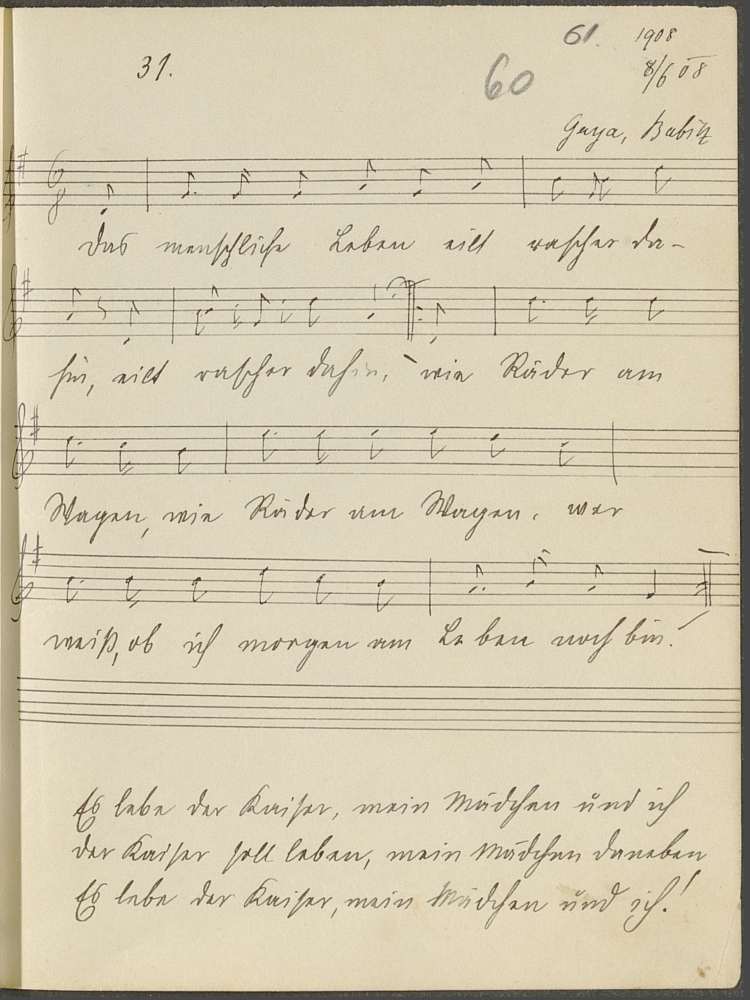 61. 1908
31. 60 8/6 08
Gaya, Babitz
6/8
Das menschliche Leben eilt rascher da-
hin, eilt rascher dahin, wie Räder am
Wagen, wie Räder am Wagen. wer
weiß, ob ich morgen am Leben noch bin!
Es lebe der Kaiser, mein Mädchen und ich
der Kaiser soll leben, mein Mädchen daneben
Es lebe der Kaiser, mein Mädchen und ich!